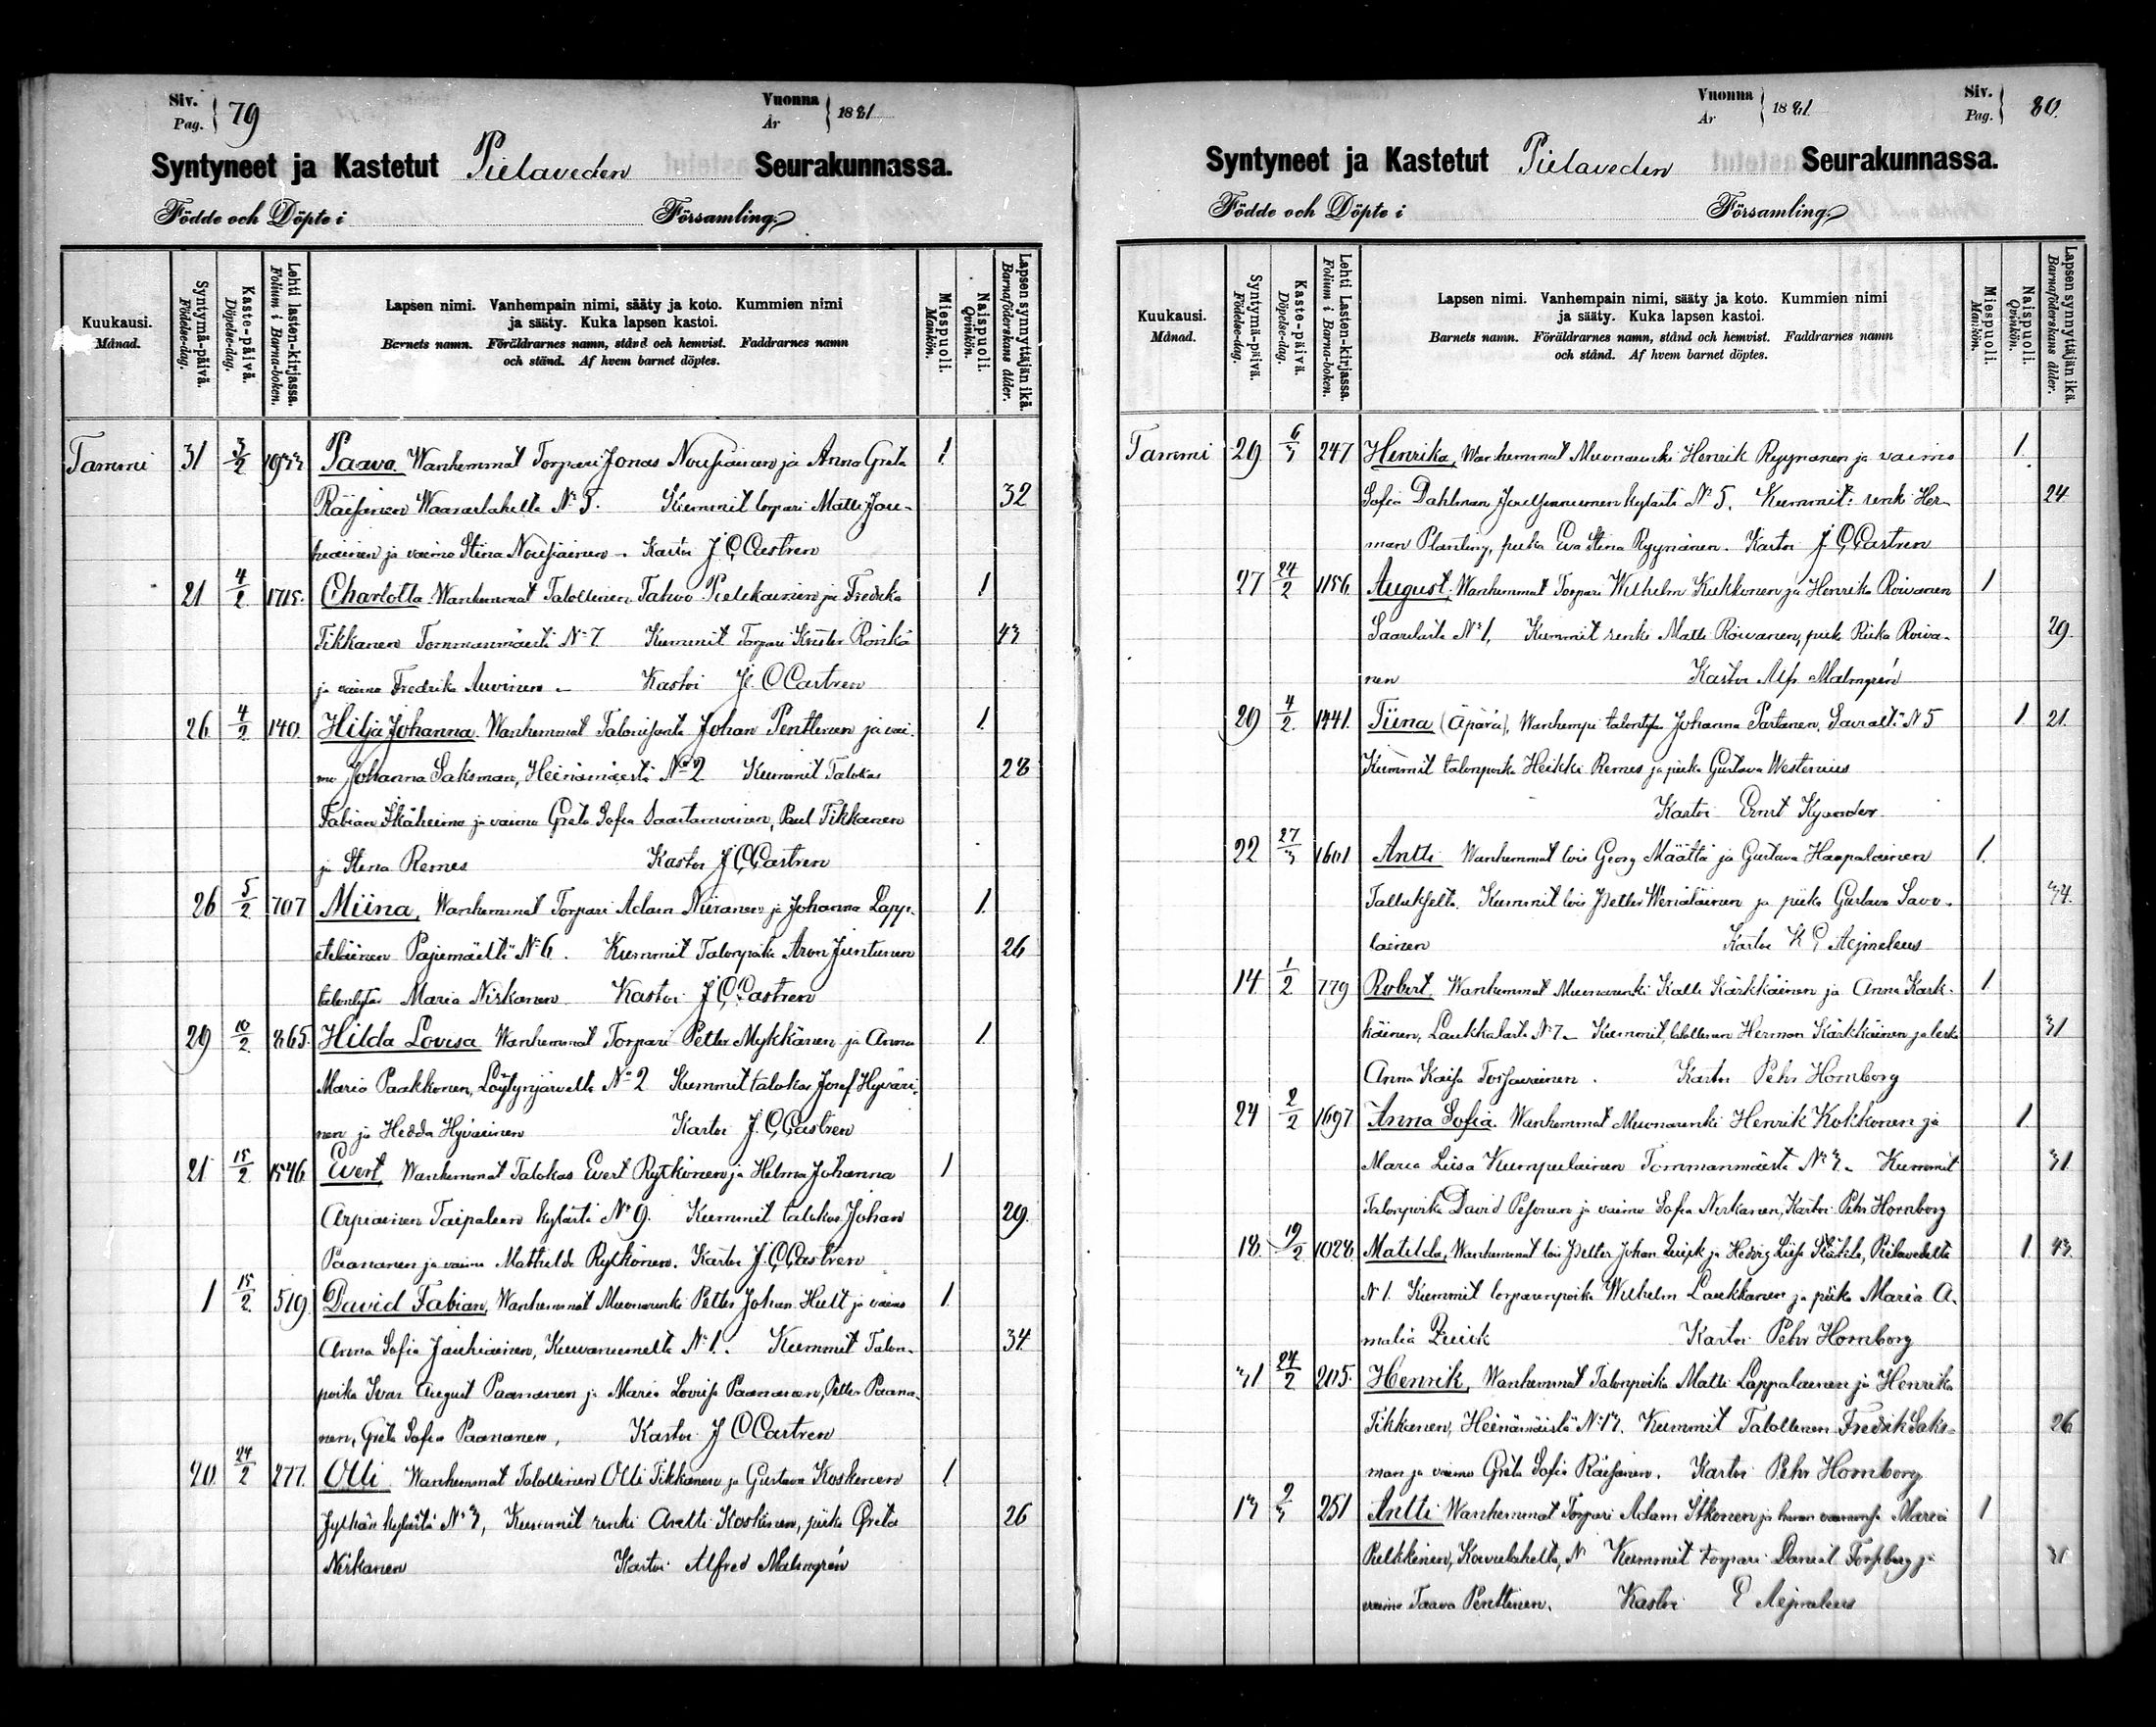 Siv. Pag. } 79
Vuonna År } 1881
Syntyneet ja Kastetut Pielaveden Seurakunnassa.
Födde och Döpte i Församling.
Kuukausi. Månad.
Syntymä-päivä. Födelse-dag.
Kaste-päivä. Döpelse-dag.
Lehti lasten-kirjassa. Folium i Barna-boken.
Lapsen nimi. Vanhempain nimi, sääty ja koto. Kummien nimi
ja sääty. Kuka lapsen kastoi.
Barnets namn. Föräldrarnes namn, stånd och hemvist. Faddrarnes namn
och stånd. Af hvem barnet döptes.
Miespuoli. Mankön.
Naispuoli. Qvinkön.
Lapsen synnyttäjän ikä. Barnaföderskans ålder.
Tammi 31 3/2 1933 Paava. Wanhemmat Torpari Jonas Nousiainen ja Anna Greta 1
Räisänen Waaraslahelta No 5. Kummit torpari Matti Jau- 32
hiainen ja vaimo Stina Nousiainen. Kastoi J C Castren
21 4/2 1715. Charlotta. Wanhemmat Talollinen Tahvo Pielikainen ja Fredrika 1
Tikkanen Tommanmäestä No 7 Kummit Torpari Krister Rönkä 43
ja vaimo Fredrika Auvinen Kastoi J. C Castren
26. 4/2 140. Hilja Johanna. Wanhemmat Talonisäntä Johan Penttinen ja vai- 1.
mo Johanna Saksman, Heinämäestä No 2 Kummit Talokas 28
Fabian Skäheimo ja vaimo Greta Sofia Saastamoinen, Paul Tikkanen
ja Stina Remes Kastoi J C Castren
26 5/2 707 Miina, Wanhemmat Torpari Adam Niiranen ja Johanna Lapp- 1.
eteläinen Pajumäeltä No 6. Kummit Talonpoika Aron Juntunen 26
talontytär Maria Niskanen Kastoi J C Castren
29 10/2 865. Hilda Lovisa Wanhemmat Torpari Petter Mykkänen ja Anna 1.
Maria Paakkonen, Löytynjärveltä No 2 Kummit talokas Josef Hyväri- 
nen ja Hedda Hyvärinen Kastoi J. C Castren
21 15/2 1546. Evert, Wanhemmat Talokas Evert Rytkönen ja Helma Johanna 1
Arpiainen Taipaleen kylästä No 9. Kummit talokas Johan 29.
Paananen ja vaimo Mathilda Rytkönen. Kastoi J. C Castren
1 15/2 519. David Fabian, Wanhemmat Muonarenki Petter Johan Hult ja vaimo 1.
Anna Sofia Jauhiainen, Kuivaniemeltä No 1. Kummit Talon- 34.
poika Ivar August Paananen ja Maria Lovisa Paananen, Petter Paana-
nen, Greta Sofia Paananen, Kastoi J C Castren
20. 24/2 277. Olli Wanhemmat Talollinen Olli Tikkanen ja Gustava Koskinen 1
Jylhän kylästä No 3, Kummit renki Antti Koskinen, piika Greta 26
Niskanen Kastoi Alfred Malmgrén
Vuonna År } 1881.
Siv. Pag. } 80.
Syntyneet ja Kastetut Pielaveden Seurakunnassa.
Födde och Döpte i Församling.
Kuukausi. Månad.
Syntymä-päivä. Födelse-dag.
Kaste-päivä. Döpelse-dag.
Lehti Lasten-kirjassa. Folium i Barna-boken.
Lapsen nimi. Vanhempain nimi, sääty ja koto. Kummien nimi
ja sääty. Kuka lapsen kastoi.
Barnets namn. Föräldrarnes namn, stånd och hemvist. Faddrarnes namn
och stånd. Af hvem barnet döptes.
Miespuoli. Mankön.
Naispuoli. Qvinkön.
Lapsen synnyttäjän ikä. Barnaföderskans ålder.
Tammi 29 6/3 247 Henrika, Wanhemmat Muonarenki Henrik Ryynänen ja vaimo 1.
Sofia Dahlman kylästä No 5. Kummit: renki Her- 24
man Planting, piika Eva Stina Ryynänen. Kastoi J. C Castren
27 24/2 1156. August, Wanhemmat Torpari Wilhelm Kukkonen ja Henrika Roivanen 1
Saarelasta No 1, Kummit renki Matti Roivanen, piik. Riika Roiva- 29.
nen Kastoi Alfr Malmgrén
29 4/2. 1441. Tiina (Äpärä), Wanhempi talontytär Johanna Partanen, Savialta N 5 1 21.
Kummit talonpoika Heikki Remes ja piika Gustava Westerius
Kastoi Ernst Kyander.
22 27/3 1601 Antti Wanhemmat lois Georg Määttä ja Gustava Haapalainen 1.
Tallukselta. Kummit lois Petter Wenäläinen ja piika Gustava Savo- 34.
lainen Kastoi K E Aejmelæus
14 1/2 779 Robert, Wanhemmat Muonarenki Kalle Kärkkäinen ja Anna Kärk- 1
käinen, Laukkalasta No 7. Kummit, talollinen Herman Kärkkäinen ja leski 31
Anna Kaisa Tossavainen. Kastoi Pehr Hornborg
24 2/2 1697 Anna Sofia. Wanhemmat Muonarenki Henrik Kokkonen ja 1
Maria Liisa Kumpulainen Tommanmäestä No 3. Kummit 31
Talonpoika David Pesonen ja vaimo Sofia Niskanen, Kastoi Pehr Hornborg
18. 19/2. 1028. Matilda, Wanhemmat lois Petter Johan Quick ja Hedvig Liisa Ståhle, Pielavedelta 1. 43.
N 1. Kummit torparinpoika Wilhelm Laukkanen ja piika Maria A-
malia Quick Kastoi Pehr Hornborg
31 24/2 2115. Henrik, Wanhemmat Talonpoika Matti Lappalainen ja Henrika
Tikkanen, Heinämäestä No 13. Kummit Talollinen Fredrik Saks- 26
man ja vaimo Greta Sofia Räisänen. Kastoi Pehr Hornborg
13 2/3 251 Antti Wanhemmat Torpari Adam Itkonen ja hänen vaimonsa Maria 1
Pulkkinen, Koivulahelta, N Kummit torpari Daniel Forsberg ja 31
vaimo Taava Penttinen. Kastoi E Aejmelæus